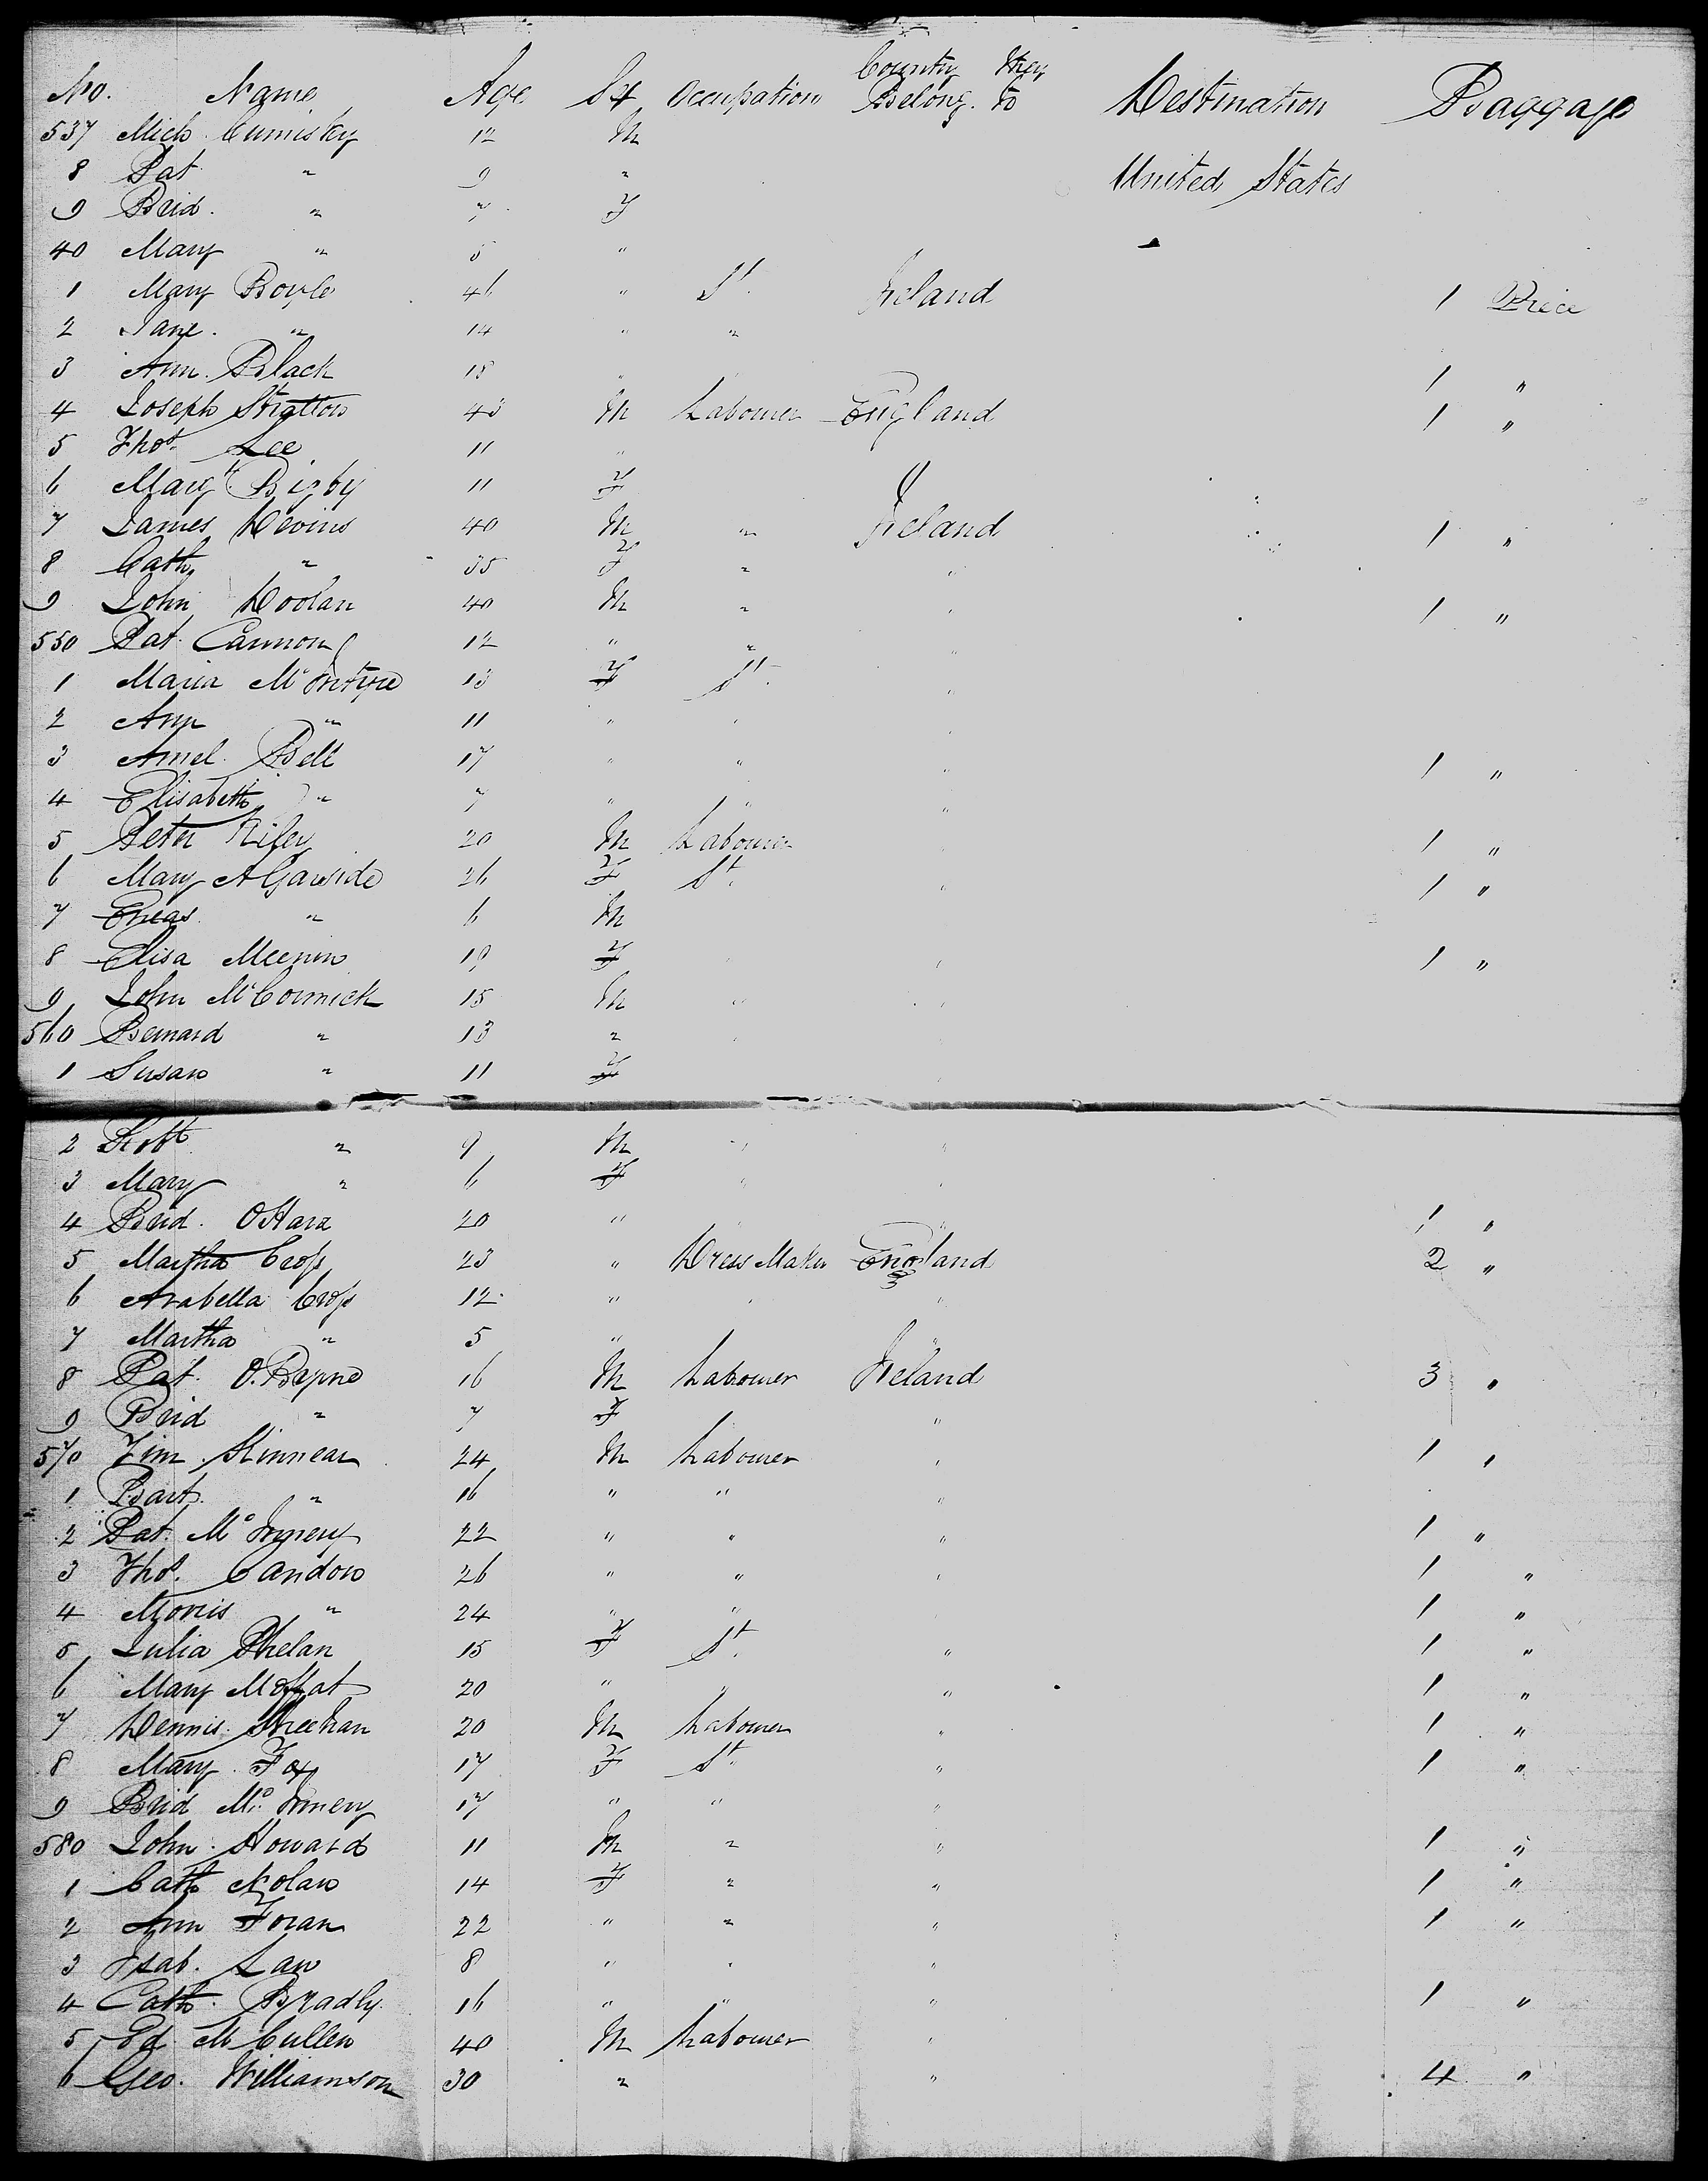 No. Name Age Sex Occupation Country they Belong. to Destination Baggage
537 Mich Cumisky 12 M
8 Pat " 9 " United States
9 Brid. " 7 F
40 Mary " 5 "
1 Mary Boyle 46 " St. Ireland 1 Piece
2 Jane. " 14 " "
3 Ann. Black 18 " 1 "
4 Joseph Stratton 43 M Labourer England 1 "
5 Thos. Lee 11 "
6 Margt. Bigby 11 F
7 James Devins 40 M " Ireland 1 "
8 Cath. " 35 F " "
9 John Doolan 40 M " " 1 "
550 Pat. Cannon 12 " " "
1 Maria McIntyre 13 F St. "
2 Ann " 11 " " "
3 Amel. Bell 17 " " " 1 "
4 Elisabeth " 7 " " "
5 Peter Rifey 20 M Labourer " 1 "
6 Mary A Garside 26 F St. " 1 "
7 " 6 M
8 Elisa Meenin 19 F " " 1 "
9 John McCormick 15 M " "
560 Bernard " 13 " " "
1 Susan " 11 F "
2 Robt " 9 M " "
3 Mary " 6 F " "
4 Brid. OHara 20 " " " 1 "
5 Martha Cross 23 " Dress Maker England 2 "
6 Arabella Cross 12 " " "
7 Martha " 5 " "
8 Pat. O. Bryne 16 M Labourer Ireland 3 "
9 Brid " 7 F "
570 Tim. Kinnear 24 M Labourer " 1 "
1 Bart. " 16 " " "
2 Pat. Mc Inneny 22 " " " 1 "
3 Thos. Candow 26 " " " 1 "
4 Morris " 24 " " 1 "
5 Julia Phelan 15 F St. " 1 "
6 Mary Moffat 20 " " " 1 "
7 Dennis. Sheehan 20 M Labourer " 1 "
8 Mary Fox 17 F St. " 1 "
9 Brid Mc. Inneny 17 " " "
580 John. Howard 11 M " " 1 "
1 Cath Nolan 14 F " " 1 "
2 Ann Foran 22 " " " 1 "
3 Isab. Law 8 " " "
4 Cath. Bradly. 16 " " " 1 "
5 Ed. McCullen 40 M Labourer "
6 Geo. Williamson 30 " " 4 "